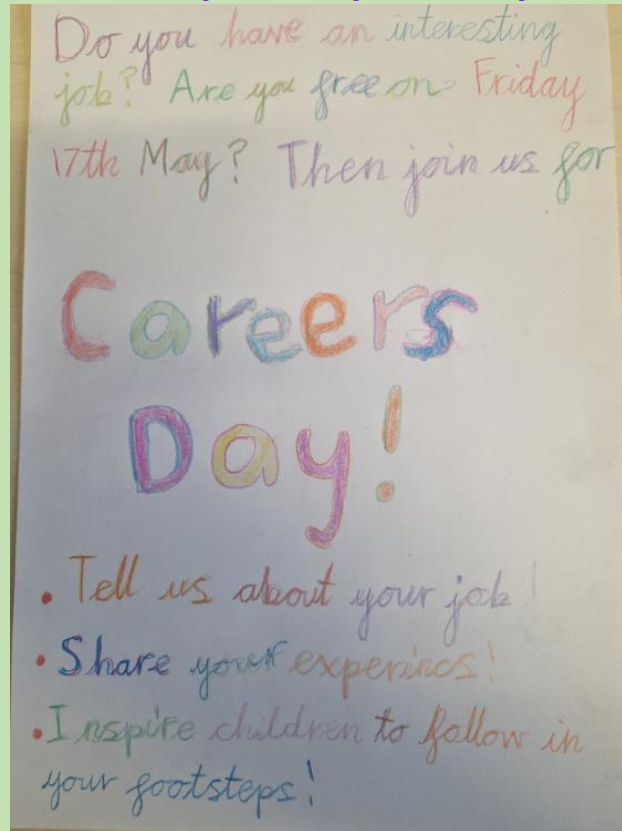 Do you have an interesting
job? Are you free on Friday
17th May? Then join us for
Careers
Day!
• Tell us about your job!
• Share your experincs!
• Inspire children to follow in
your footsteps!